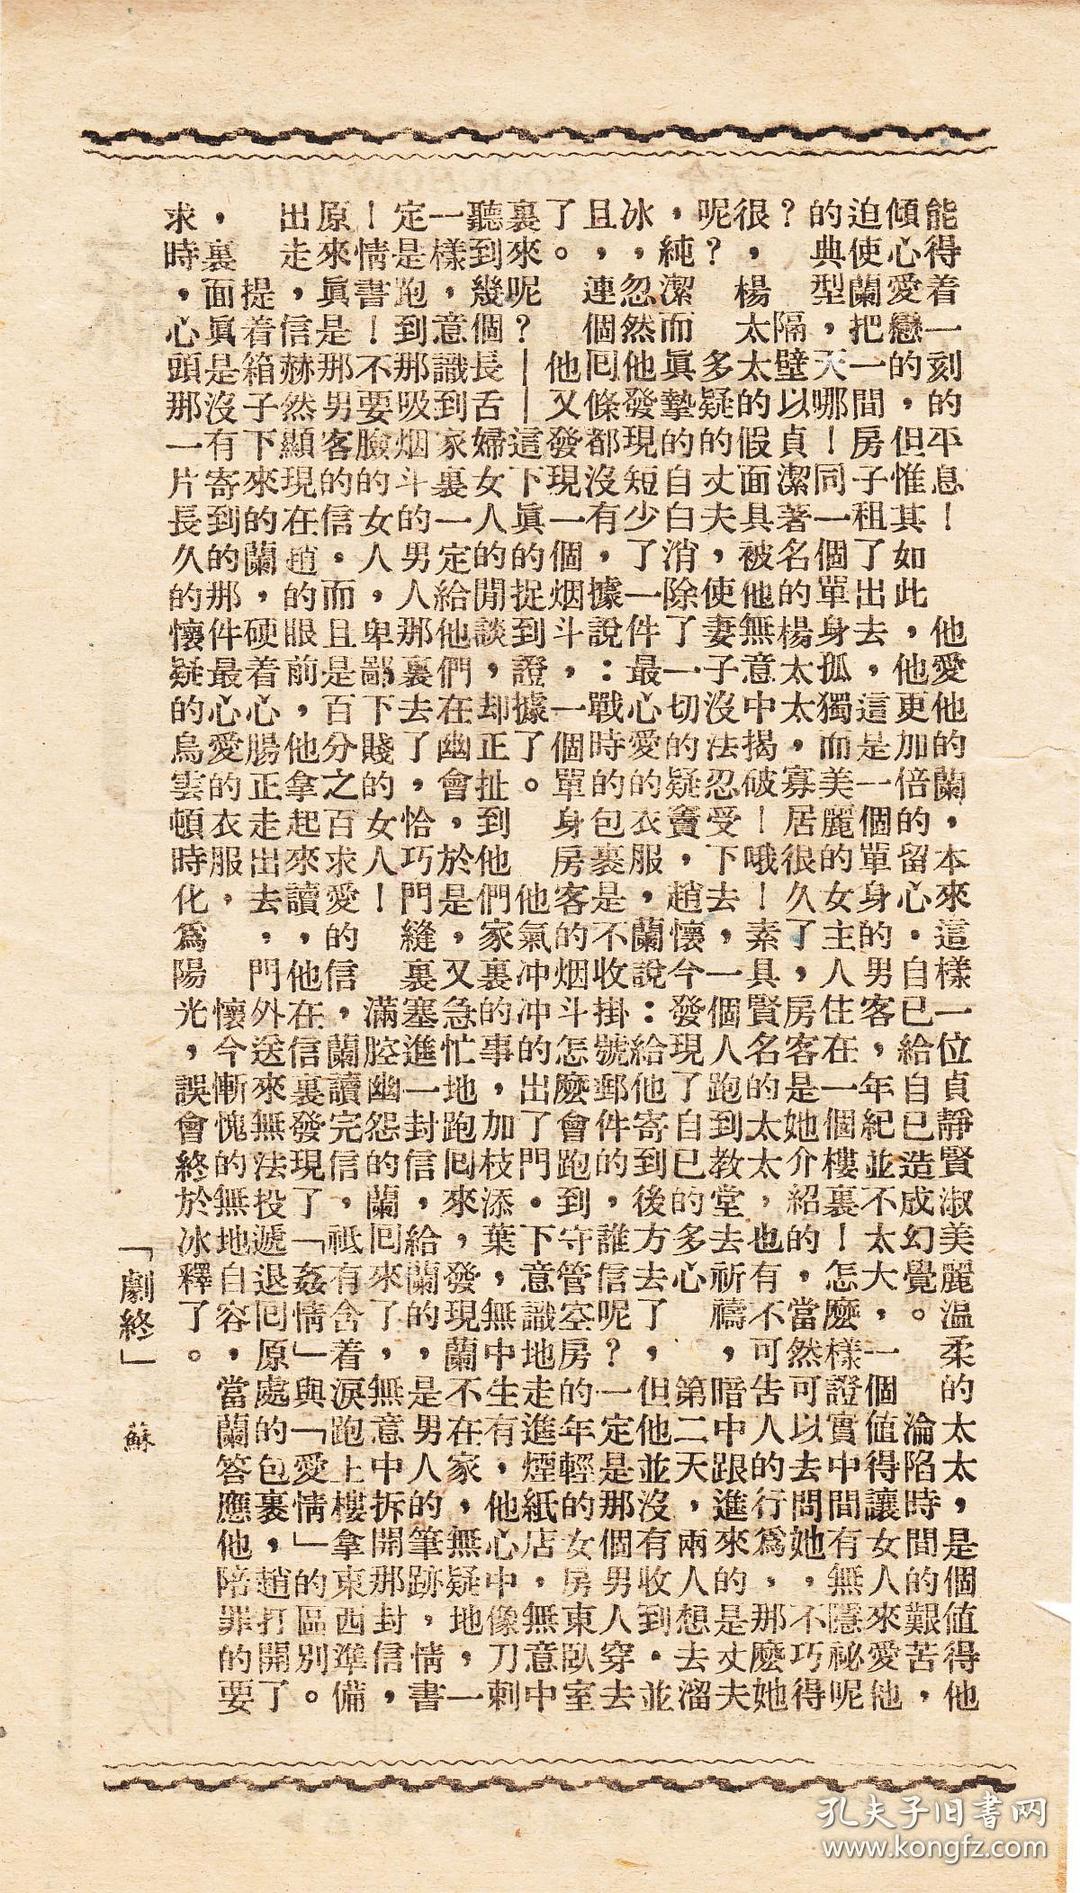 能得着一刻的平息！　他愛他的蘭，本來這樣一位貞靜賢淑美麗温柔的太太，是個值得他
傾心愛戀的，但惟其如此，他更加倍的留心．自已給自已造成幻覺。　淪陷時間的艱苦，
迫使蘭把一間房子租了出去，這是一個單身的男客，年紀並不太大，一個值得讓女人來愛他
的典型，天哪！同一個單身孤獨而美麗的女主人住在一個樓裏！怎麼樣證實中間有無隱祕呢
？　隔壁以貞潔著名的楊太太，寡居很久了，房客是她介紹的，當然可以去問她，不巧得
很，楊太太的假面具被他無意中揭破！哦！素具賢名的太太，也有不可告人的行爲，那麼她
呢？　多疑的丈夫，使妻子沒法忍受下去，一個人跑到教堂去祈禱，暗中跟進來的是丈夫
，純潔而眞摯的自白消除了一切的疑竇，趙懷今發現了自已的多心　第二天，兩人想去溜
冰，忽然他發現短少了一件最心愛的衣服，蘭說：給他寄到後方去了，但他並沒有收到．並
且，連個囘條都沒有，據說：戰時的包裹是不收掛號郵件的，誰信呢？一定是那個男人穿去
了。　他又發現一個烟斗，一個單身房客的烟斗怎麼會跑到守管空房的年輕的女房東臥室
裏來呢？——這下眞的捉到證據了。　他氣冲冲的出了門．下意識地走進煙紙店，無意中
聽到幾個長舌婦女人的閒談，却正扯到他們家裏的事，加枝添葉，無中生有，他心中像刀刺
一樣，意識到家裏一定給他們在幽會，於是，又急忙地跑囘來，發現蘭不在家，無疑地，一
定是跑到那吸烟斗的男人那裏去了，恰巧門縫裏塞進一封信，給蘭的，是男人的筆跡，情書
！情書！不要臉的女人，卑鄙下賤的女人！　滿腔幽怨的蘭囘來了，無意中拆開那封信，
原來眞是那男客的信．而且是百分之百求愛的信，蘭讀完信，祗有含着淚跑上樓拿東西準備
出走，信赫然顯現在趙的眼前，他拿起來讀，他在信裏發現了「姦情」與「愛情」的區別。
提着箱子下來的蘭，硬着心腸正走出去，門外送來無法投遞退囘原處的包裹，趙打開了
，裏面眞是沒有寄到的那件最心愛的衣服，　懷今慚愧的無地自容，當蘭答應他，陪罪的要
求時，心頭那一片長久的懷疑的烏雲頓時化爲陽光，誤會終於冰釋了。
「劇終」　蘇
孔夫子旧書网
www.kongfz.com